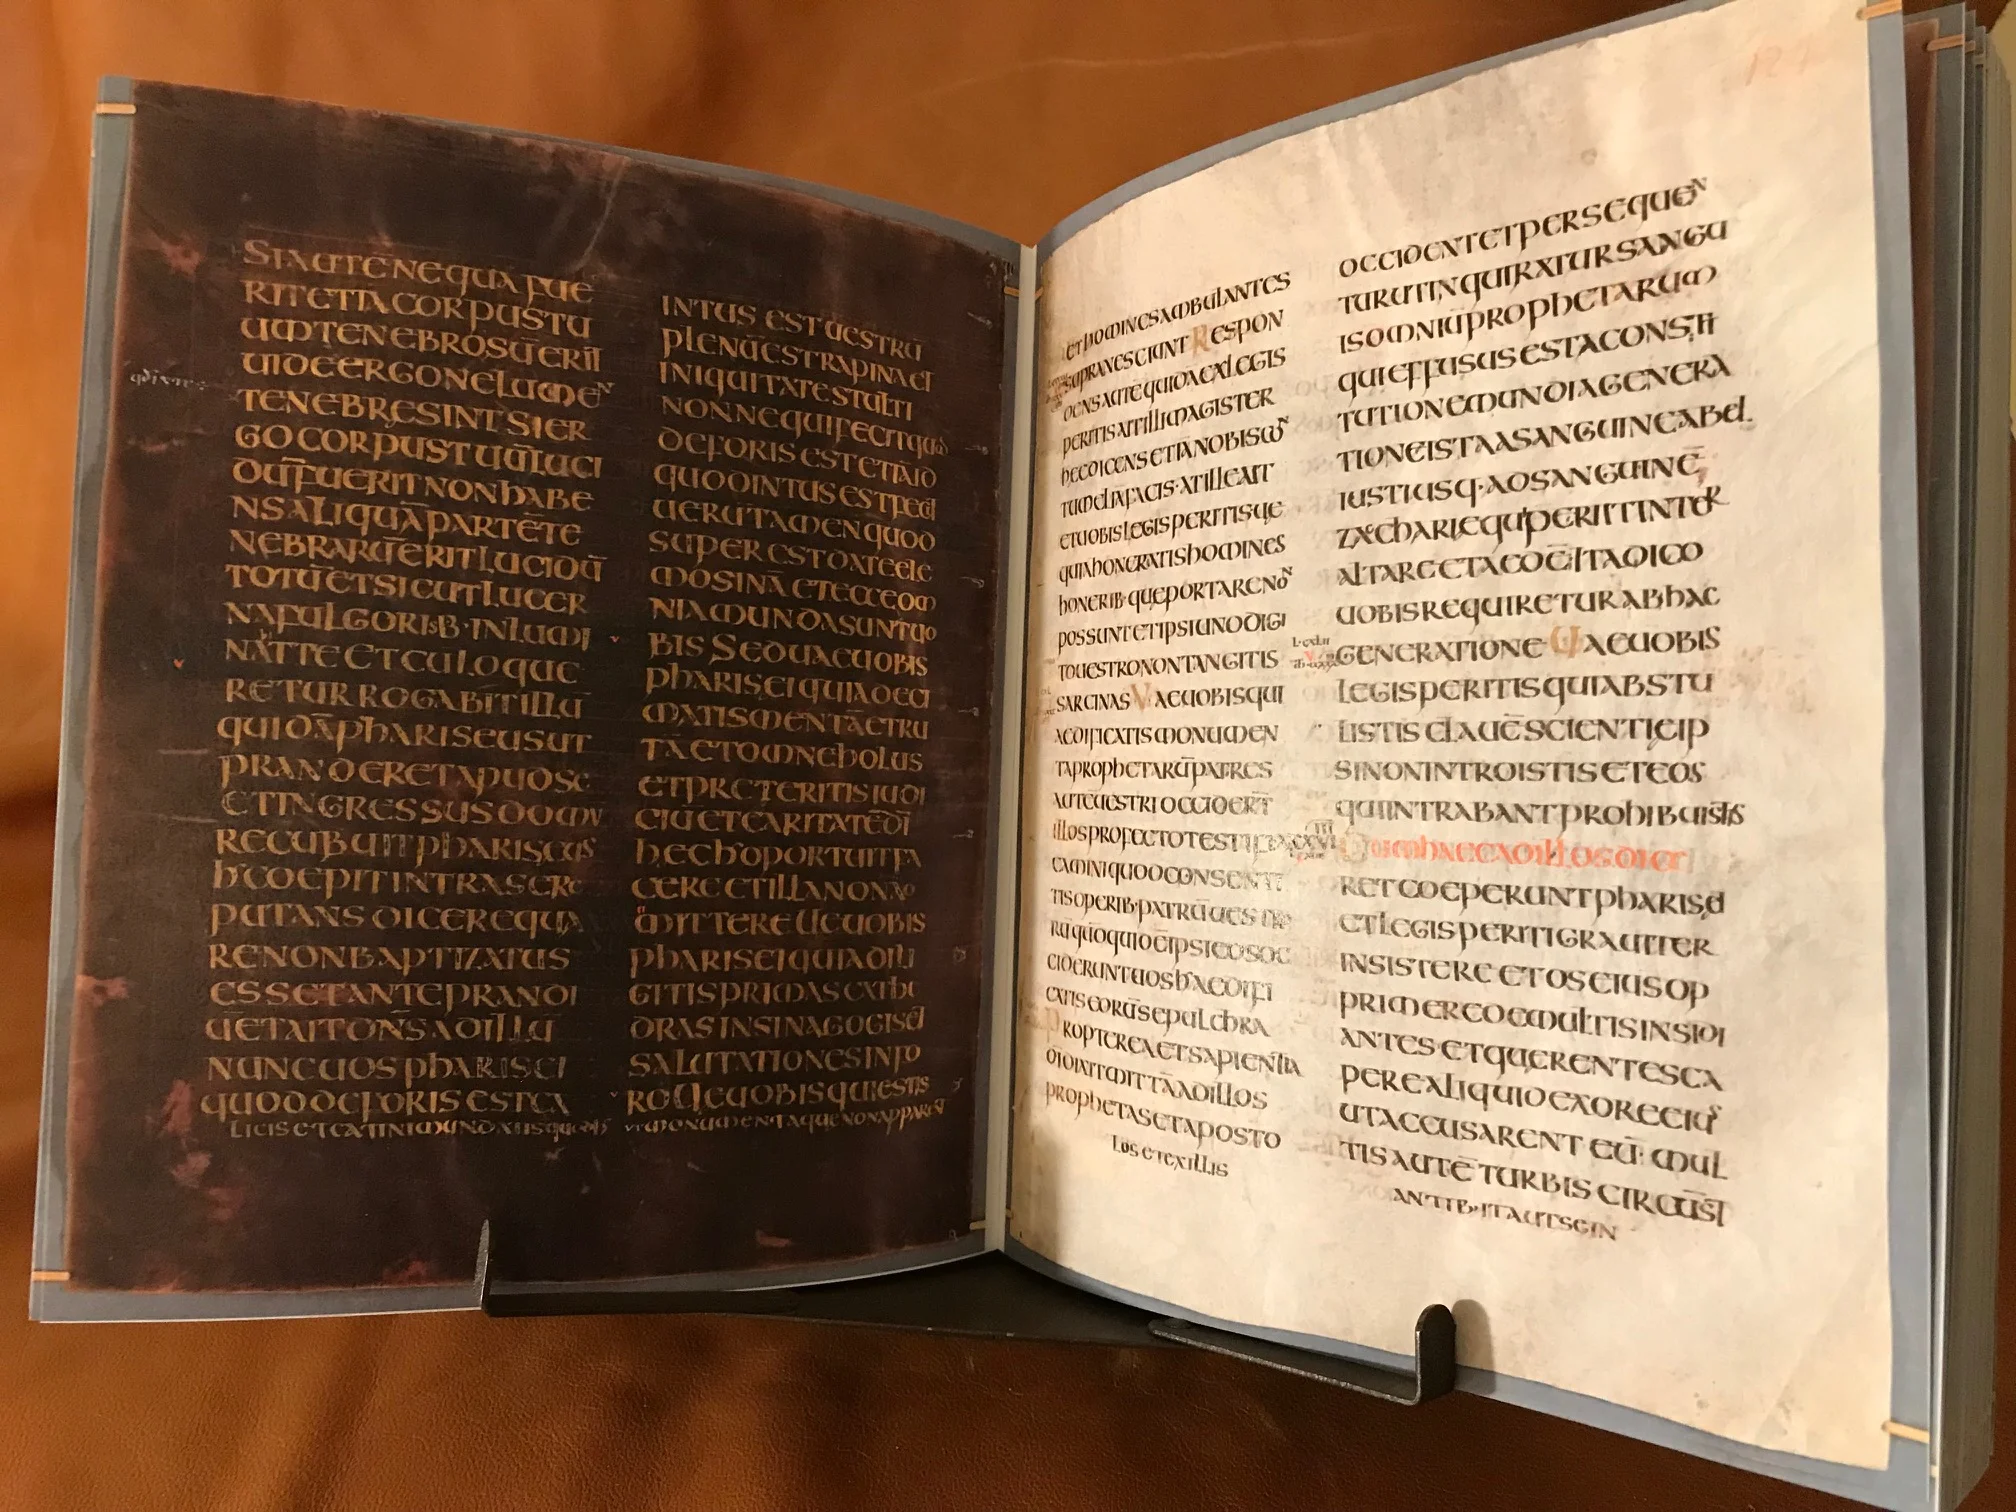 SI AUTĒ NEQUA FUE
RIT ETIĀ CORPUS TU
UM TENEBROSŪ ERIT
UIDE ERGO NE LUMEN
TENEBRE SINT SI ER
GO CORPUS TUŪ LUCI
DŪ FUERIT NON HABE
NS ALIQUĀ PARTĒ TE
NEBRARŪ ERIT LUCIDŪ
TOTŪ ET SICUT LUCER
NA FULGORIS
RETUR ROGABIT ILLŪ
QUIDĀ PHARISEUS UT
PRANDERET APUD SE
ET INGRESSUS DOMU
RECUBUIT PHARISEUS
COEPIT INTRA SE RE
PUTANS DICERE QUA
RE NON BAPTIZATUS
ESSET ANTE PRANDI
Ū ET AIT DNS AD ILLŪ
NUNC UOS PHARISEI
QUOD DEFORIS EST CA
LICIS ET CATINI MUNDATIS QUOD
INTUS EST UESTRŪ
PLENŪ EST RAPINA ET
INIQUITATE STULTI
NONNE QUI FECIT QUOD
DEFORIS EST ETIĀ ID
QUOD INTUS EST FECIT
UERŪTAMEN QUOD
SUPEREST DATE ELE
MOSINĀ ET ECCE OM
NIA MUNDA SUNT UO
BIS SED UAE UOBIS
PHARISEI QUIA DECI
MATIS MENTĀ ET RU
TĀ ET OMNE HOLUS
ET PRETERITIS IUDI
CIŪ ET CARITATĒ DI
HEC OPORTUIT FA
CERE ET ILLA NON
OMITTERE UE UOBIS
PHARISEI QUIA DILI
GITIS PRIMAS CATHE
DRAS IN SINAGOGIS ET
SALUTATIONES IN FO
RO UE UOBIS QUI ESTIS
UT MONUMENTA QUE NON PARENT
ET HOMINES AMBULANTES
SUPRA NESCIUNT RESPON
DENS AUTĒ QUIDA EX LEGIS
PERITIS AIT ILLI MAGISTER
HEC DICENS ETIĀ NOBIS CON
TUMELIĀ FACIS AT ILLE AIT
ET UOBIS LEGIS PERITIS UE
QUIA HONERATIS HOMINES
HONERIB· QUE PORTARE NON
POSSUNT ET IPSI UNO DIGI
TO UESTRO NON TANGITIS
SARCINAS VAE UOBIS QUI
AEDIFICATIS MONUMEN
TA PROPHETARŪ PATRES
AUTĒ UESTRI OCCIDERT
ILLOS PROFECTO TESTIFI
CAMINI QUOD CONSENTI
TIS OPERIB· PATRŪ UESTRO
RŪ QUO QUIDĒ IPSI EOS OC
CIDERUNT UOS AEDIFI
CATIS EORŪ SEPULCHRA
PROPTEREA ET SAPIENTIA
DI DIXIT MITTĀ AD ILLOS
PROPHETAS ET APOSTO
LOS ET EX ILLIS
OCCIDENT ET PERSEQUEN
TUR UT INQUIRATUR SANGU
IS OMNIŪ PROPHETARUM
QUI EFFUSUS EST A CONSTI
TUTIONE MUNDI A GENERA
TIONE ISTA A SANGUINE ABEL
IUSTI USQ· AD SANGUINĒ
ZACHARIE QUI PERIIT INTER
ALTARE ET AEDĒ ITA DICO
UOBIS REQUIRETUR AB HAC
GENERATIONE UAE UOBIS
LEGIS PERITIS QUIA BSTU
LISTIS CLAUĒ SCIENTIE IP
SI NON INTROISTIS ET EOS
QUI INTRABANT PROHIBUISTIS
CUM HAEC AD ILLOS DICE
RET COEPERUNT PHARISEI
ET LEGIS PERITI GRAUITER
INSISTERE ET OS EIUS OP
PRIMERE DE MULTIS INSIDI
ANTES ET QUERENTES CA
PERE ALIQUID EX ORE EIUS
UT ACCUSARENT EŪ· MUL
TIS AUTĒ TURBIS CIRCŪST
ANTIB· ITA UT SE IN